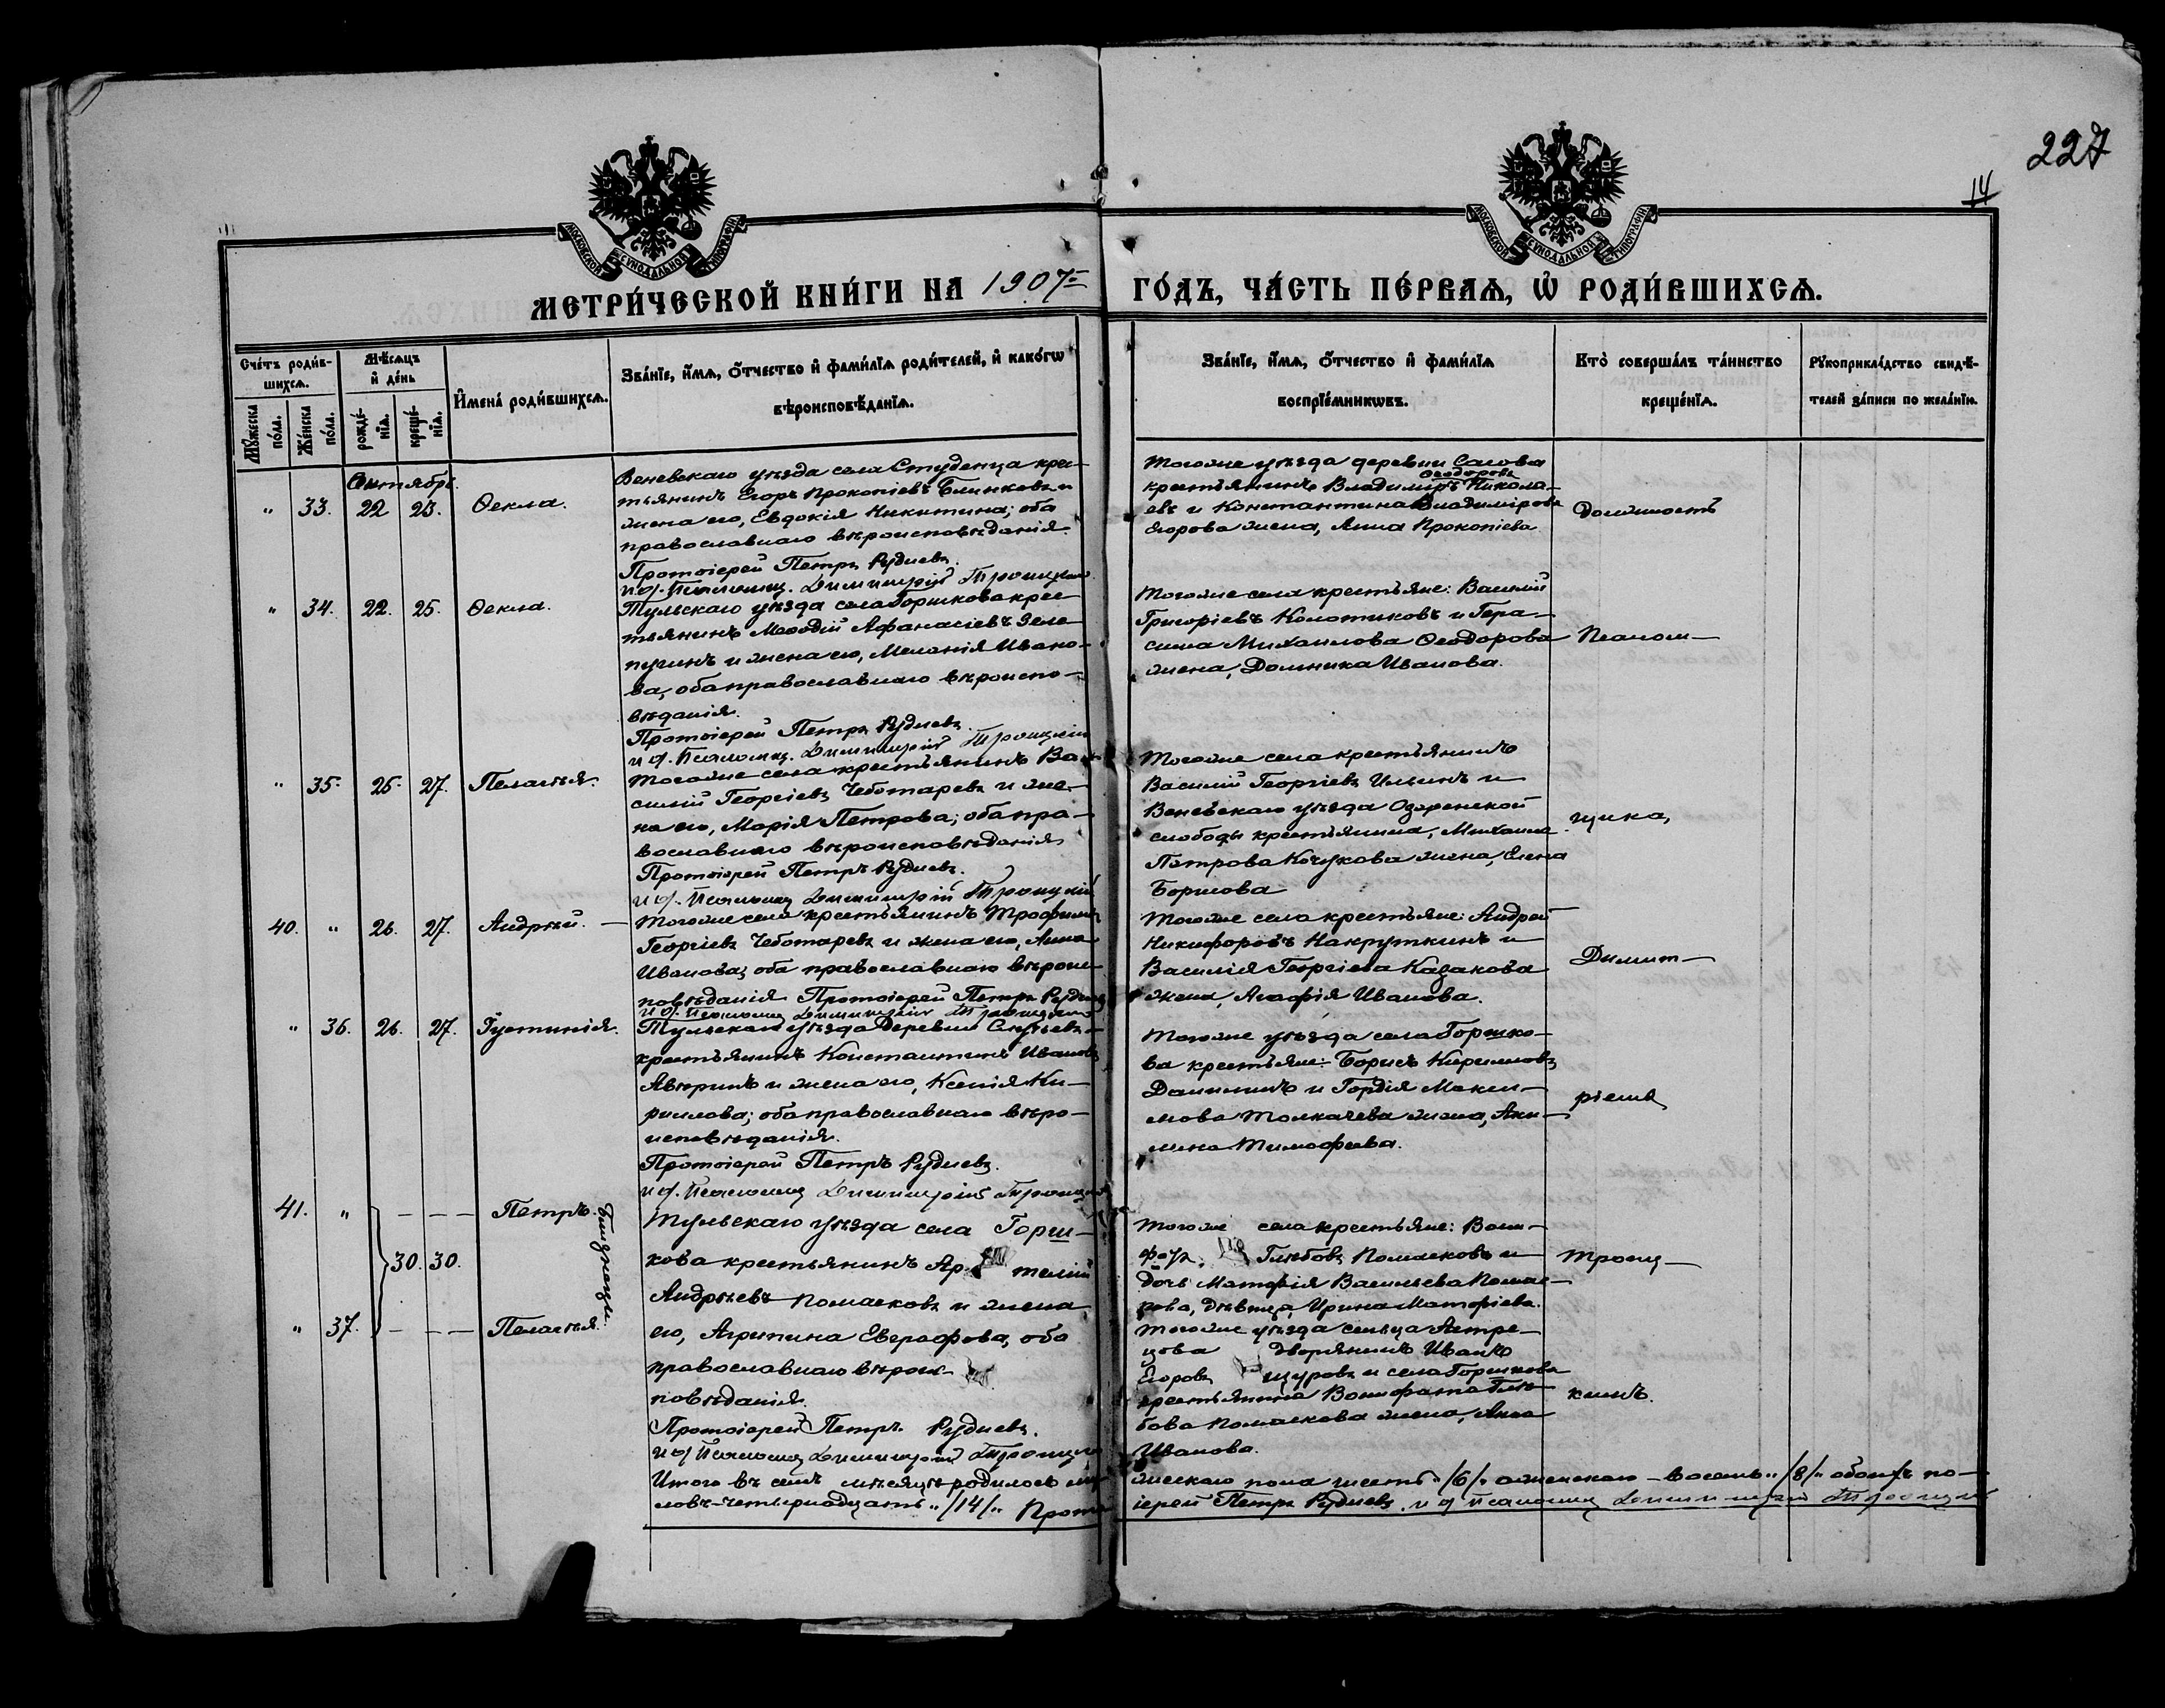 227
14
МОСКОВСКОЙ СУНОДАЛЬНОЙ ТИПОГРАФІИ
МОСКОВСКОЙ СУНОДАЛЬНОЙ ТИПОГРАФІИ
МЕТРИ́ЧЕСКОЙ КНИ́ГИ НА 1907
ГО́ДЪ, ЧА́СТЬ ПЕ́РВАѦ, Ѡ҆ РОДИ́ВШИХСѦ.
Сче́тъ роди́вшихсѧ.
Мꙋ́жеска по́ла.
Же́нска по́ла.
Мѣ́сѧцъ и҆ де́нь
рожде́нїѧ.
креще́нїѧ.
И҆мена̀ роди́вшихсѧ.
Зва́нїе, и҆́мѧ, ѻ҆́тчество и҆ фами́лїѧ роди́телей, и҆ како́гѡ
вѣроисповѣ́данїѧ.
Зва́нїе, и҆́мѧ, ѻ҆́тчество и҆ фами́лїѧ
воспрїе́мникѡвъ.
Кто̀ соверша́лъ та́инство
креще́нїѧ.
Рꙋкоприкла́дство свидѣ́-
телей за́писи по жела́нїю.
Октябрь.
" 33. 22 23. Ѳекла.
Веневскаго уѣзда села Студенца крес-
тьянинъ Егоръ Прокопіевъ Блинковъ и
жена его, Евдокія Никитина; оба
православнаго вѣроисповѣданія.
Протоіерей Петръ Рудневъ.
и д. Псаломщ. Димитрій Троицкій
Тогоже уѣзда деревни
крестьянинъ Владиміръ Никола-
Ѳеодоровъ
евъ и Константина Владимірова
Егорова жена, Анна Прокопіева
Должность
" 34. 22. 25. Ѳекла.
Тульскаго уѣзда села Горшкова крес-
тьянинъ Меѳодій Афанасіевъ Зеле-
пугинъ и жена его, Меланія Ивано-
ва, оба православнаго вѣроиспо-
вѣданія.
Протоіерей Петръ Рудневъ.
и д. Псаломщ. Димитрій Троицкій
Тогоже села крестьяне: Василій
Григоріевъ Колотиковъ и Гера-
сима Михаилова Ѳеодорова
жена, Домника Иванова.
Псалом-
" 35. 25. 27. Пелагѣя.
Тогоже села крестьянинъ Ва-
силій Георгіевъ Чеботаревъ и же-
на его, Марія Петрова; оба пра-
вославнаго вѣроисповѣданія
Протоіерей Петръ Рудневъ.
и д. Псаломщ Димитрій Троицкій
Тогоже села крестьянинъ
Василій Георгіевъ Ильинъ и
Веневскаго уѣзда Озеренской
слободы крестьянина, Михаила
Петрова Кочукова жена, Елена
Борисова
щика,
40. " 26. 27. Андрей.
Тогоже села крестьянинъ Трофимъ
Георгіевъ Чеботаревъ и жена его, Анна
Иванова; оба православнаго вѣроис-
повѣданія Протоіерей Петръ Рудневъ
и д. Псаломщ Димитрій Троицкій
Тогоже села крестьяне: Андрей
Никифоровъ Накруткинъ и
Василія Георгіева Казакова
жена, Агафія Иванова.
Димит-
" 36. 26. 27. Іустинія.
Тульскаго уѣзда деревни
крестьянинъ Константинъ Ивановъ
Авѣринъ и жена его, Ксенія Ки-
рилова; оба православнаго вѣро-
исповѣданія.
Протоіерей Петръ Рудневъ.
и д. Псаломщ Димитрій Троицкій
Тогоже уѣзда села Горшко-
ва крестьяне: Борисъ Кириловъ
Данилинъ и Гордія Макси-
мова Толкачева жена, Аки-
лина Тимофеева.
ріемъ
41. " Петръ.
30. 30. близнецы.
" 37. Пелагѣя.
Тульскаго уѣзда села Горш-
кова крестьянинъ Ар темій
Андреевъ Помасковъ и жена
его, Агрипина Евграфова, оба
православнаго вѣроис-
повѣданія.
Протоіерей Петръ Рудневъ.
и д Псаломщ Димитрій Троицкій
Тогоже села крестьяне: Вони-
фатъ Глѣбовъ Помасковъ и
дочь Матфія Васильева Помас-
кова, дѣвица, Ирина Матфіева.
Тогоже уѣзда сельца
дворянинъ Иванъ
Егоровъ и села Горшкова
крестьянина Вонифата Глѣ-
бова Помаскова жена, Анна
Иванова.
Троиц-
кимъ.
Итого въ семъ мѣсяцѣ родилось му-
жескаго пола шесть "/6/" а женскаго - восемь "/8/" обоихъ по-
ловъ-четырнадцать "/14/" Прото-
іерей Петръ Рудневъ. и д Псаломщ Димитрій Троицкій